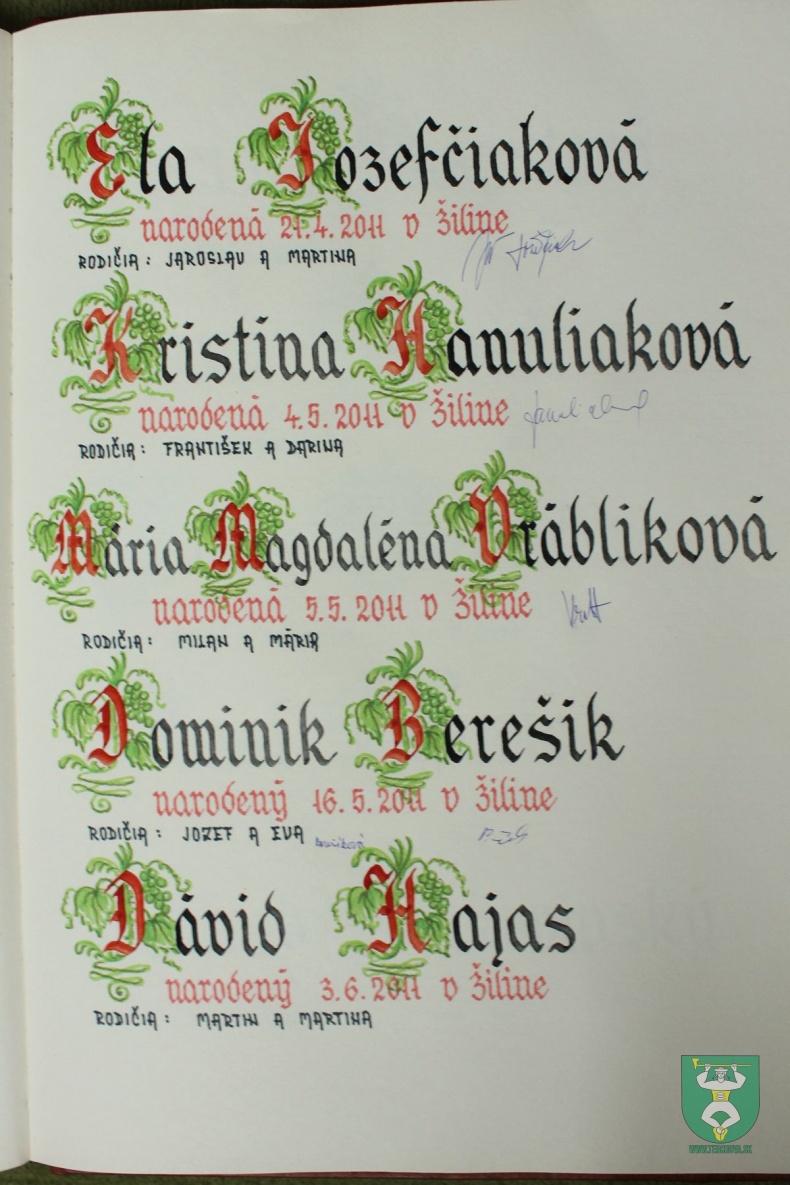 Ela Jozefčiaková
narodená 21.4.2011 v Žiline
RODIČIA: JAROSLAV A MARTINA
Kristína Hanuliaková
narodená 4.5.2011 v Žiline
RODIČIA: FRANTIŠEK A DARINA
Mária Magdaléna Vrábliková
narodená 5.5.2011 v Žiline
RODIČIA: MILAN A MÁRIA
Dominik Berešík
narodený 16.5.2011 v Žiline
RODIČIA: JOZEF A EVA
Dávid Hajas
narodený 3.6.2011 v Žiline
RODIČIA: MARTIN A MARTINA
WWW.TERCHOVA.SK